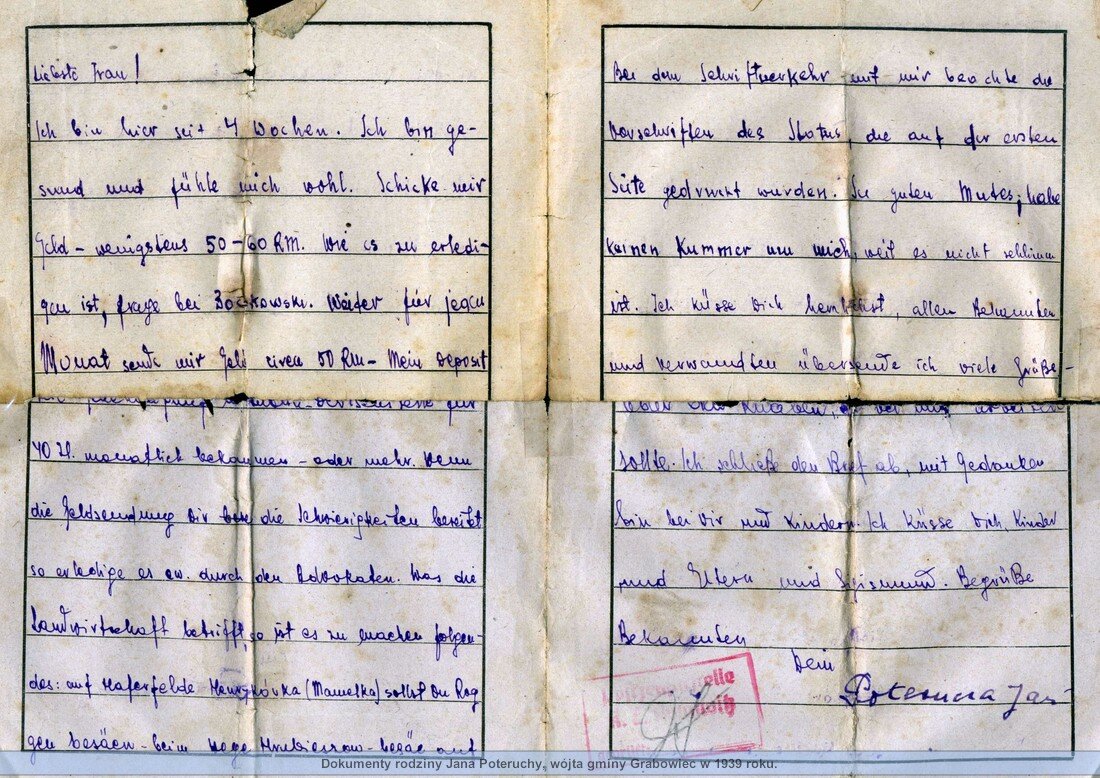 Liebste Frau!
Ich bin hier seit 4 Wochen. Ich bin ge-
sund und fühle mich wohl. Schicke mir
Geld - wenigstens 50-60 RM. Wie es zu erledi-
gen ist, frage bei Boćkowski. Weiter für jeden
Monat sende mir Geld circa 50 RM - Mein Deposit
für
40 Zl. monatlich bekommen - oder mehr. Wenn
die Geldsendung Dir die Schwierigkeiten bereitet
so erledige es ew. durch den Advokaten. Was die
Landwirtschaft betrifft, so ist es zu machen folgen-
des: auf Haferfelde (Mamelka) sollst Du Rog
gen besäen - beim Wege Hrubieszow - besäe auf
Bei dem Schriftverkehr mit mir beachte die
Vorschriften des Status, die auf der ersten
Seite gedruckt wurden. Sei guten Mutes, habe
keinen Kummer um mich, weil es nicht schlimm
ist. Ich küsse Dich herzlichst, allen Bekannten
und Verwandten übersende ich viele Grüße -
sollte. Ich schließe den Brief ab, mit Gedanken
bin bei Dir und Kindern. Ich küsse Dich, Kinder
und Eltern und Sigismund. Begrüße
Bekannten
Dein
Poterucha Jan
Dokumenty rodziny Jana Poteruchy, wójta gminy Grabowiec w 1939 roku.